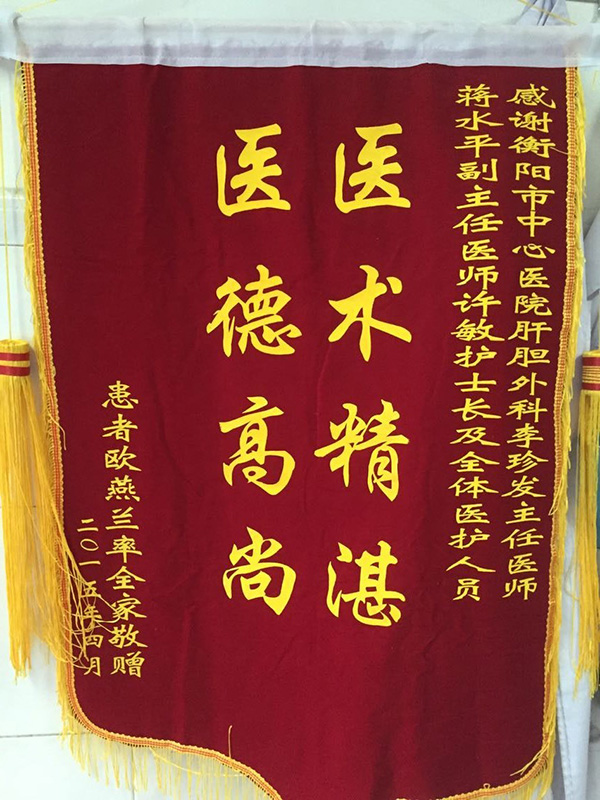 感谢衡阳市中心医院肝胆外科李珍发主任医师
蒋水平副主任医师许敏护士长及全体医护人员
医术精湛
医德高尚
患者欧燕兰率全家敬赠
二〇一五年四月